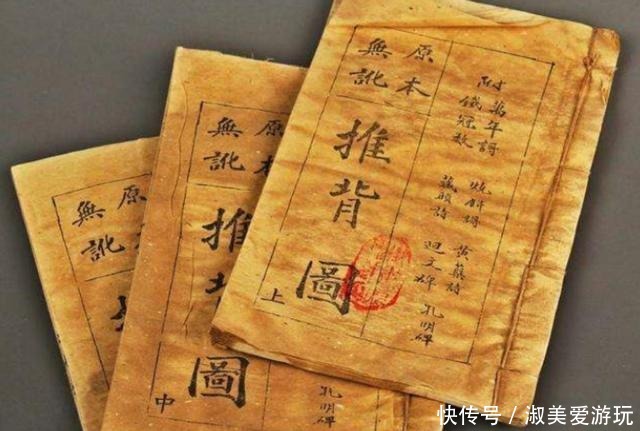 附
萬年謌
鐵冠數
燒餅謌
藏頭詩
黃蘗詩
迴文碑
孔明碑
原本
無訛
推背圖
上
原本
無訛
推背圖
中
孔明碑
原本
無訛
快传号 / 淑美爱游玩